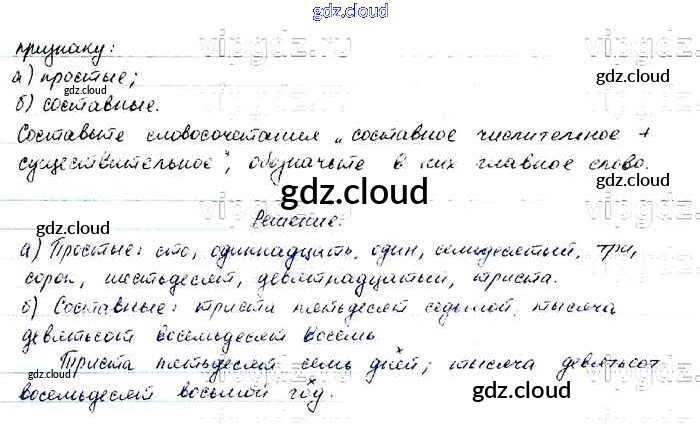 gdz.cloud
признаку:
vipgdz.ru vipgdz.ru
а) простые;
gdz.cloud gdz.cloud
б) составные.
Составьте словосочетания „составное числительное +
существительное“, обозначьте в них главное слово.
gdz.cloud
gdz.cloud Решение: gdz.cloud
а) Простые: сто, одиннадцать, один, семидесятый, три,
сорок, шестьдесят, девятнадцатый, триста.
б) Составные: триста пятьдесят седьмой, тысяча
девятьсот восемьдесят восемь.
Триста пятьдесят семь дней; тысяча девятьсот
gdz.cloud
восемьдесят восьмой год.
gdz.cloud